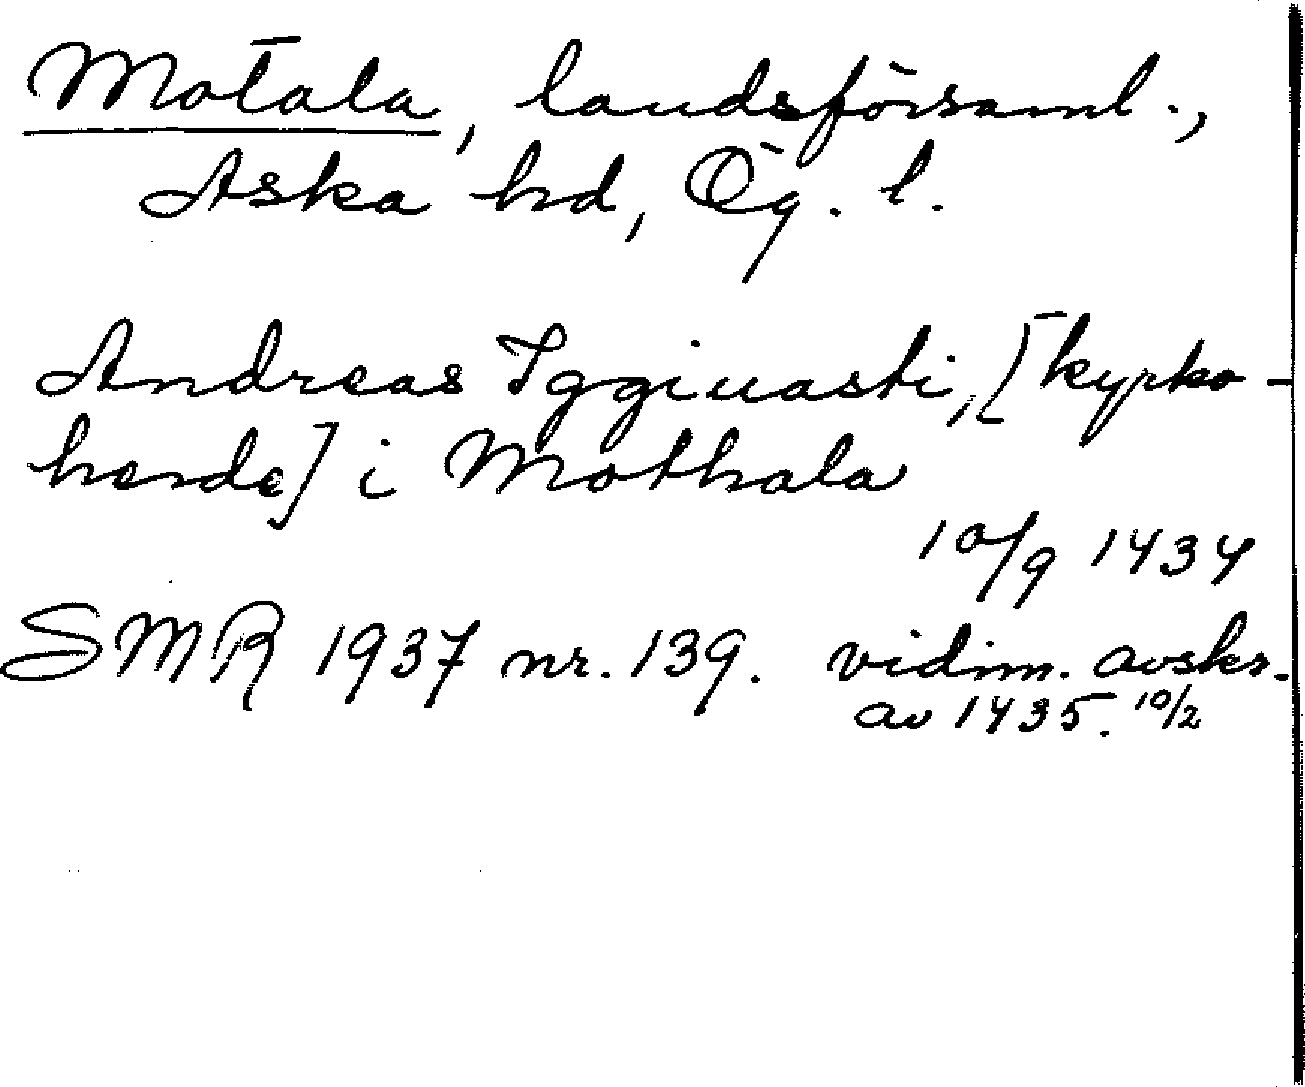 Motala, landsförsaml.,
Aska hd, Ög. l.
Andreas Iggiuasti, [kyrko-
herde] i Mothala
10/9 1434
SMR 1937 nr. 139. vidim. avskr.
av 1435. 10/2